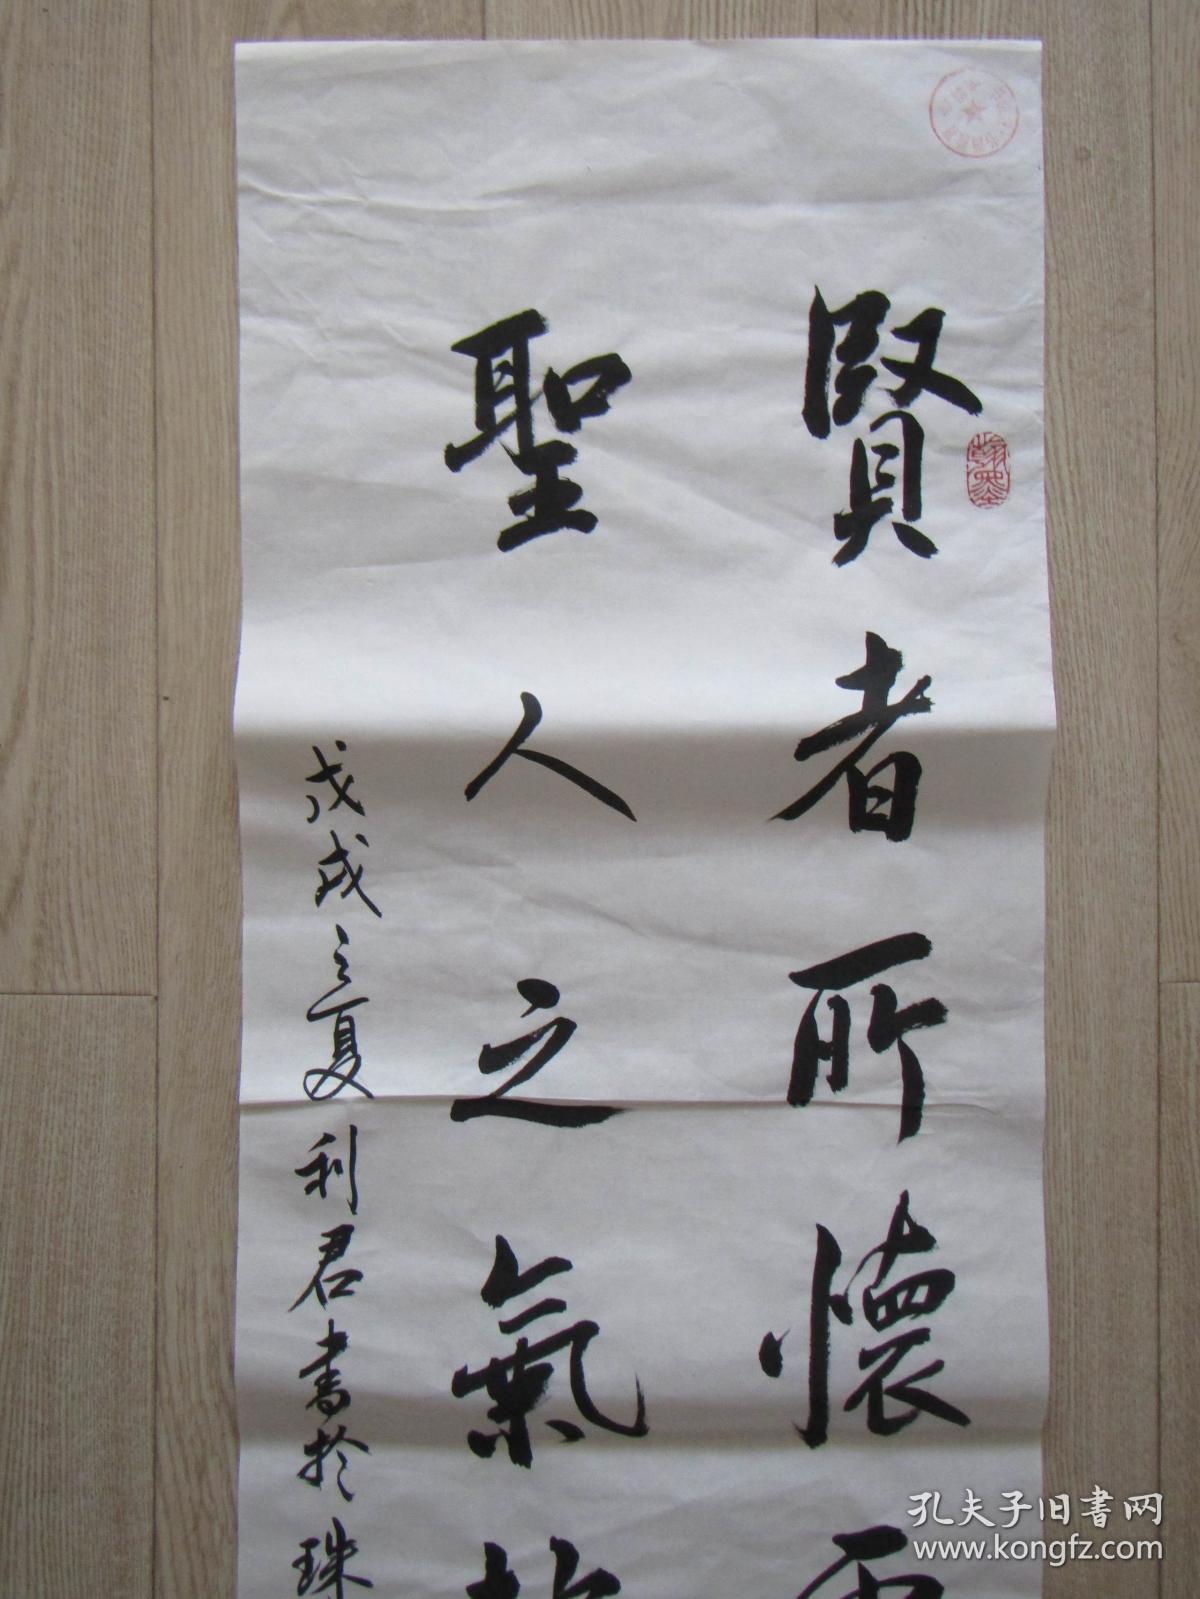 賢者所懷
聖人之氣
戊戌之夏利君書於珠
翰墨
孔夫子旧書网
www.kongfz.com